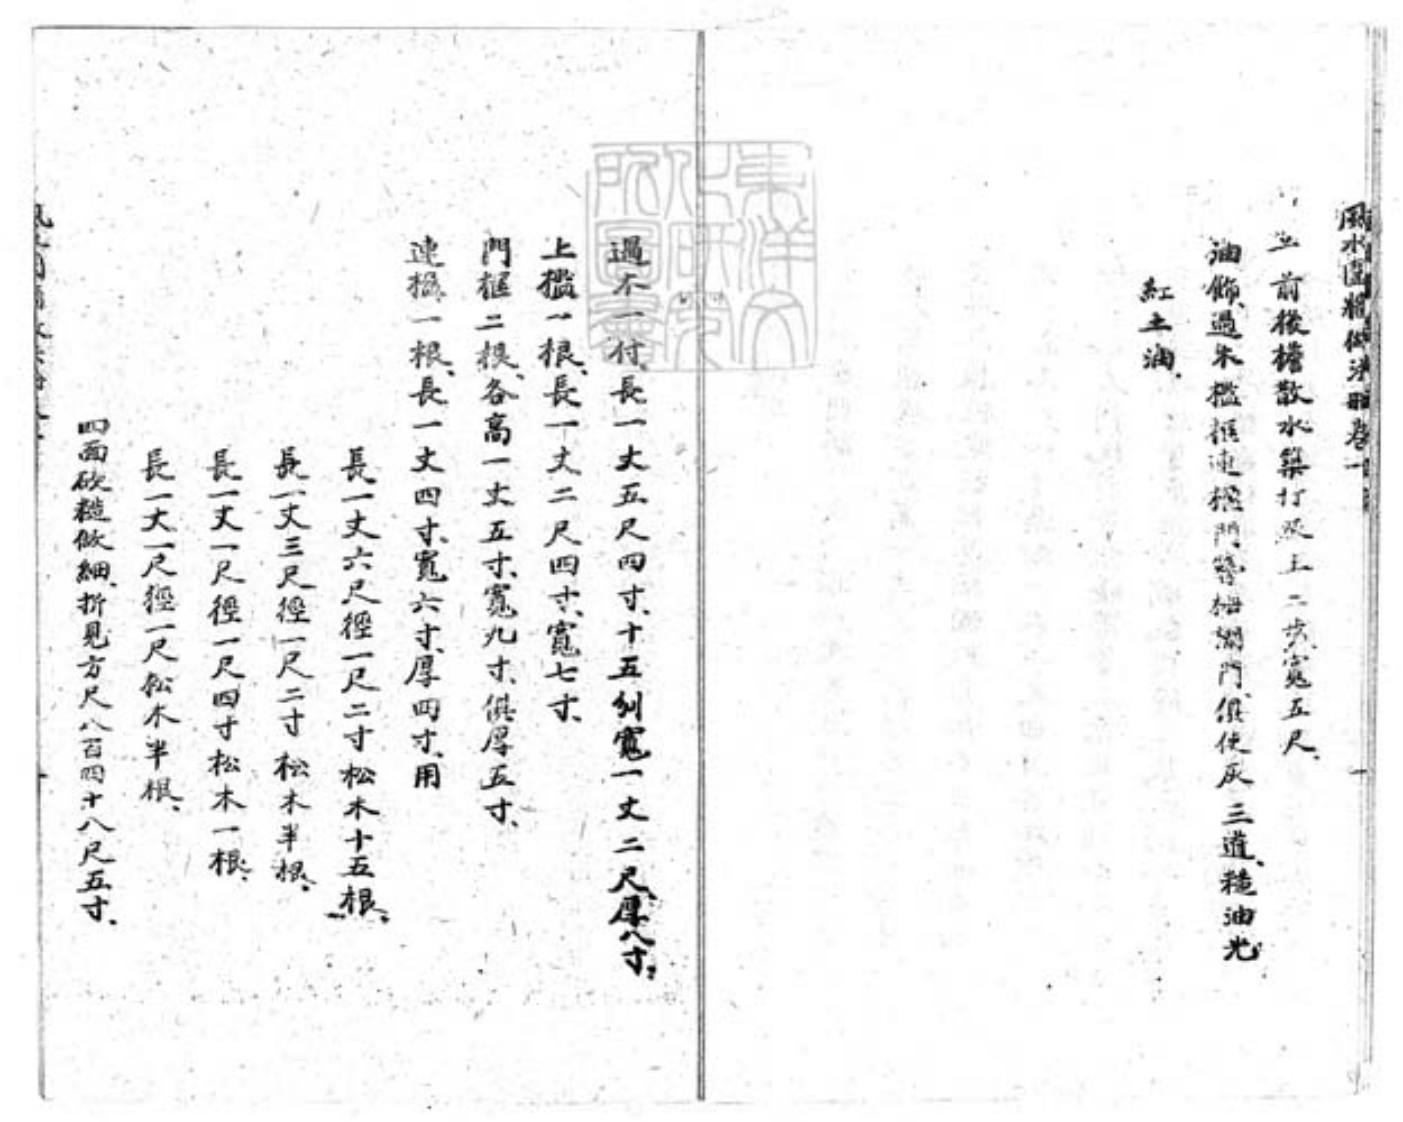 風水圍牆做法冊卷一
前後檐散水築打灰土二步寬五尺、
油飾、過木檻框連楹門簪栅欄門、俱使灰三道、糙油光
紅土油、
東洋文化研究所圖書
過木一付、長一丈五尺四寸、十五列寬一丈二尺、厚八寸、
上檻一根、長一丈二尺四寸、寬七寸、
門框二根、各高一丈五寸、寬九寸、俱厚五寸、
連楹一根、長一丈四寸、寬六寸、厚四寸、用
長一丈六尺徑一尺二寸松木十五根、
長一丈三尺徑一尺二寸松木半根、
長一丈一尺徑一尺四寸松木一根、
長一丈一尺徑一尺松木半根、
四面砍糙做細、折見方尺八百四十八尺五寸、